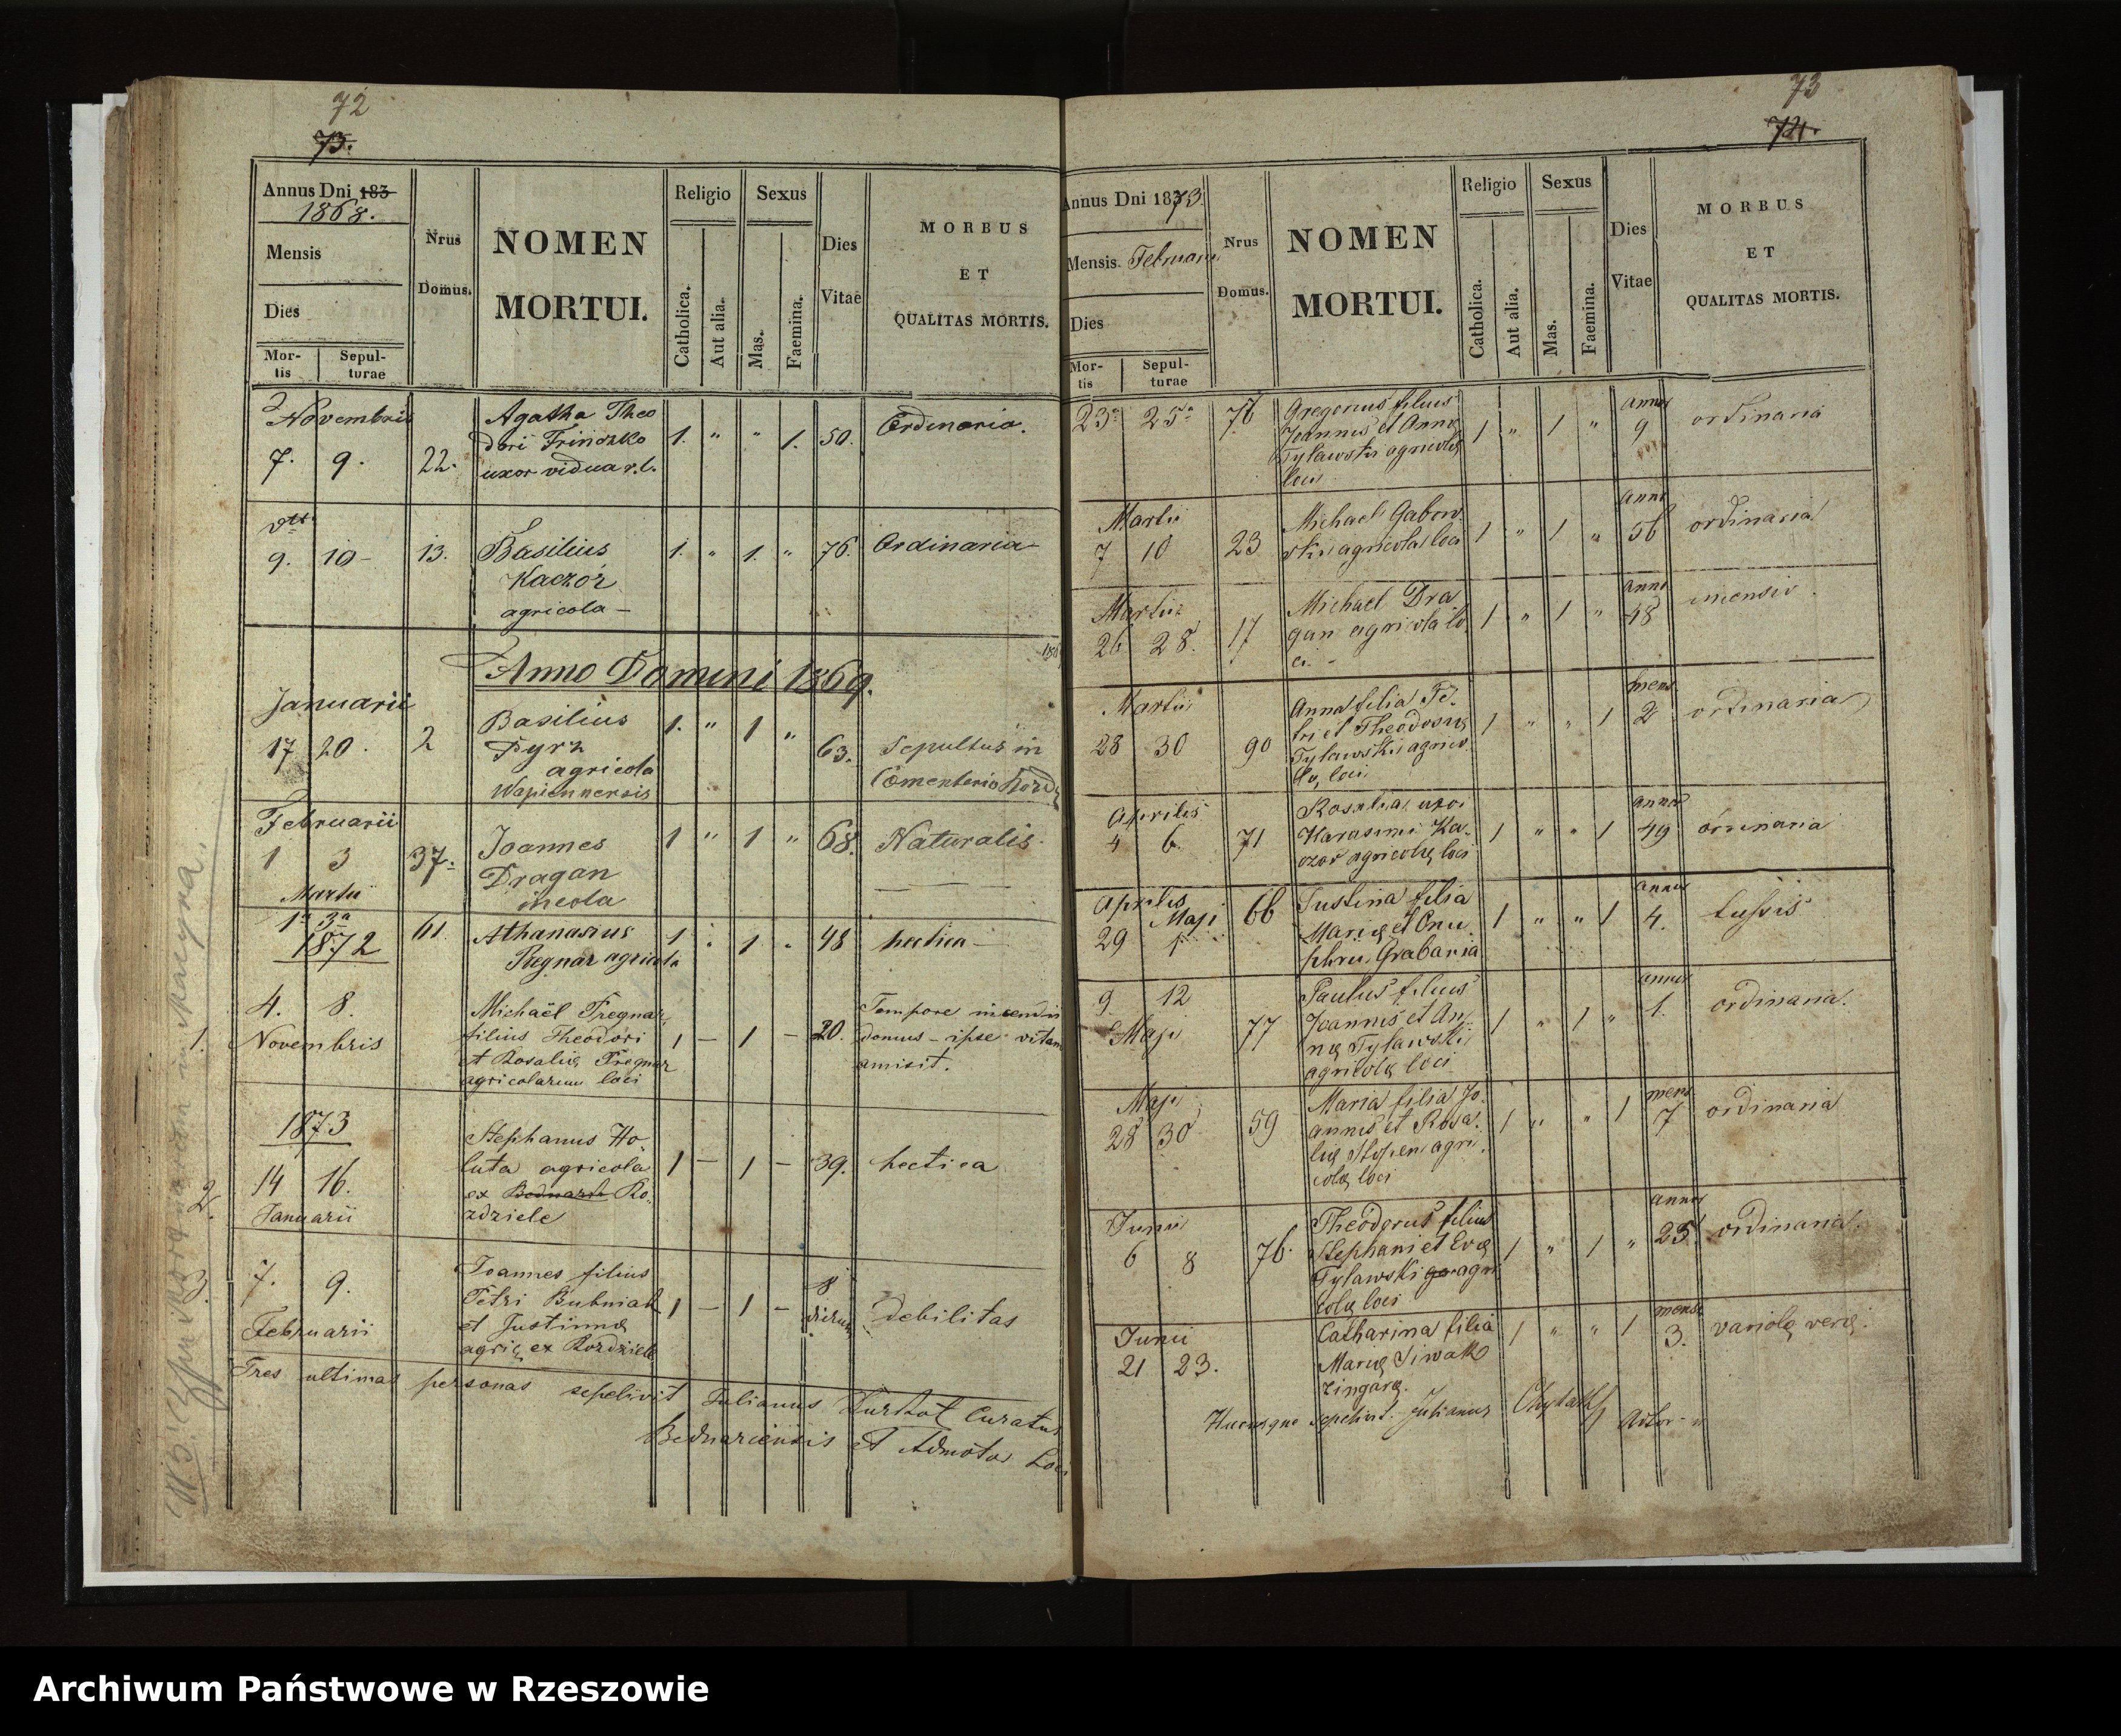 72
73.
Annus Dni 183
1868.
Mensis
Dies
Mor-
tis
Sepul-
turae
Nrus
Domus.
NOMEN
MORTUI.
Religio
Catholica.
Aut alia.
Sexus
Mas.
Faemina.
Dies
Vitae
MORBUS
ET
QUALITAS MORTIS.
Novembris
7. 9. 22.
Agatha Theo
dori Trinczko
uxor vidua r.l.
1. " " 1. 50. Ordinaria.
9. 10- 13.
Basilius
Kaczor
agricola -
1. " 1. " 76. Ordinaria-
Anno Domini 1869.
Januarii
17 20. 2
Basilius
Pyrz
agricola
Wapiennensis
1. " 1 " 63. Sepultus in
Cömenterio
Februarii
1 3 37.
Joannes
Dragan
incola
1 " 1 " 68. Naturalis.
Martii
1a 3a 61
1872
Athanasius
agricola
1 . 1 . 48 hectica -
1. 4. 8.
Novembris
Michaël Fregnar
filius Theodori
et Rosalię Fregnar
agricolarum loci
1 - 1 - 20.
Tempore incendii
domus - ipse vitam
amisit.
1873
2. 14 16.
Januarii
Stephanus Ho
luta agricola
ex Bednark Ro-
zdziele
1 - 1 - 39. hectica
3. 7. 9.
Februarii
Joannes filius
Petri Bubniak
et Justinnę
ex Rozdziele
1 - 1 - 8
dierum
debilitas
Tres ultimas personas sepelivit Julianus Curatus
Bednariensis et Admotor Loci
in Męcyna.
73
74.
Annus Dni 1873.
Mensis. Februarii
Dies
Mor-
tis
Sepul-
turae
Nrus
Domus.
NOMEN
MORTUI.
Religio
Catholica.
Aut alia.
Sexus
Mas.
Faemina.
Dies
Vitae
MORBUS
ET
QUALITAS MORTIS.
23a 25a 76
Gregorius filius
Joannis et Anna
Tylawski agricolę
loci
1 " 1 " annor 9 ordinaria
Martii
7 10 23
Michael Gabow
ski agricola loci
1 " 1 " anno 56 ordinaria
Martii
26 28. 17
Michael Dra
gan agricola lo
ci. -
1 " 1 " anno 48
Martii
28 30 90
Anna filia Pe-
tri et Theodosię
Tylawski agrico
lę, loci
1 " " 1 mens 2 ordinaria
Aprilis
4 6. 71
Rosalia uxor
Harasimi Ka-
czor agricolę loci
1 " " 1 annor 49 ordinaria
Aprilis
Maji
29 1. 66
Justina filia
Marię et Onu
phrii Grabania
1 " " 1 annor 4. tussis
9 12
Maji
77
Paulus filius
Joannis et An-
nę Tylawski
agricolę loci
1 " 1 " annus 1. ordinaria.
Maji
28 30 59
Maria filia Jo-
annis et Rosa-
lię agri-
colę loci
1 " " 1 mens 7 ordinaria
Junii
6 8 76.
Theodorus filius
Stephani et Evę
Tylawski agri
colę loci
1 " 1 " annor 25 ordinaria.
Junii
21 23.
Catharina filia
Marię Siwak
zingarę.
1 " " 1 mens 3. variolę verę.
Hucusque sepelivit. Julianus
Archiwum Państwowe w Rzeszowie